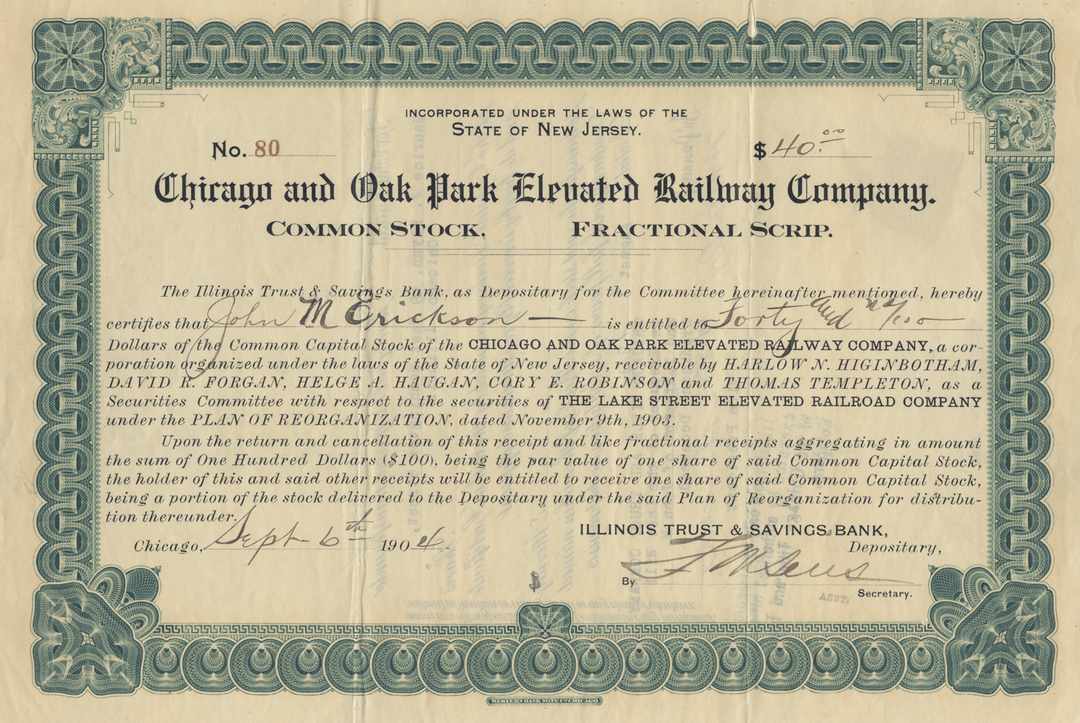 INCORPORATED UNDER THE LAWS OF THE
STATE OF NEW JERSEY.
No. 80 $ 40.00
Chicago and Oak Park Elevated Railway Company.
COMMON STOCK. FRACTIONAL SCRIP.
The Illinois Trust & Savings Bank, as Depositary for the Committee hereinafter mentioned, hereby
certifies that John M Erickson — is entitled to Forty and no/100
Dollars of the Common Capital Stock of the CHICAGO AND OAK PARK ELEVATED RAILWAY COMPANY, a cor-
poration organized under the laws of the State of New Jersey, receivable by HARLOW N. HIGINBOTHAM,
DAVID R. FORGAN, HELGE A. HAUGAN, CORY E. ROBINSON and THOMAS TEMPLETON, as a
Securities Committee with respect to the securities of THE LAKE STREET ELEVATED RAILROAD COMPANY
under the PLAN OF REORGANIZATION, dated November 9th, 1903.
Upon the return and cancellation of this receipt and like fractional receipts aggregating in amount
the sum of One Hundred Dollars ($100), being the par value of one share of said Common Capital Stock,
the holder of this and said other receipts will be entitled to receive one share of said Common Capital Stock,
being a portion of the stock delivered to the Depositary under the said Plan of Reorganization for distribu-
tion thereunder.
ILLINOIS TRUST & SAVINGS BANK,
Chicago, Sept 6th 1904. Depositary,
By
ASST. Secretary.
WESTERN BANK NOTE CO. CHICAGO